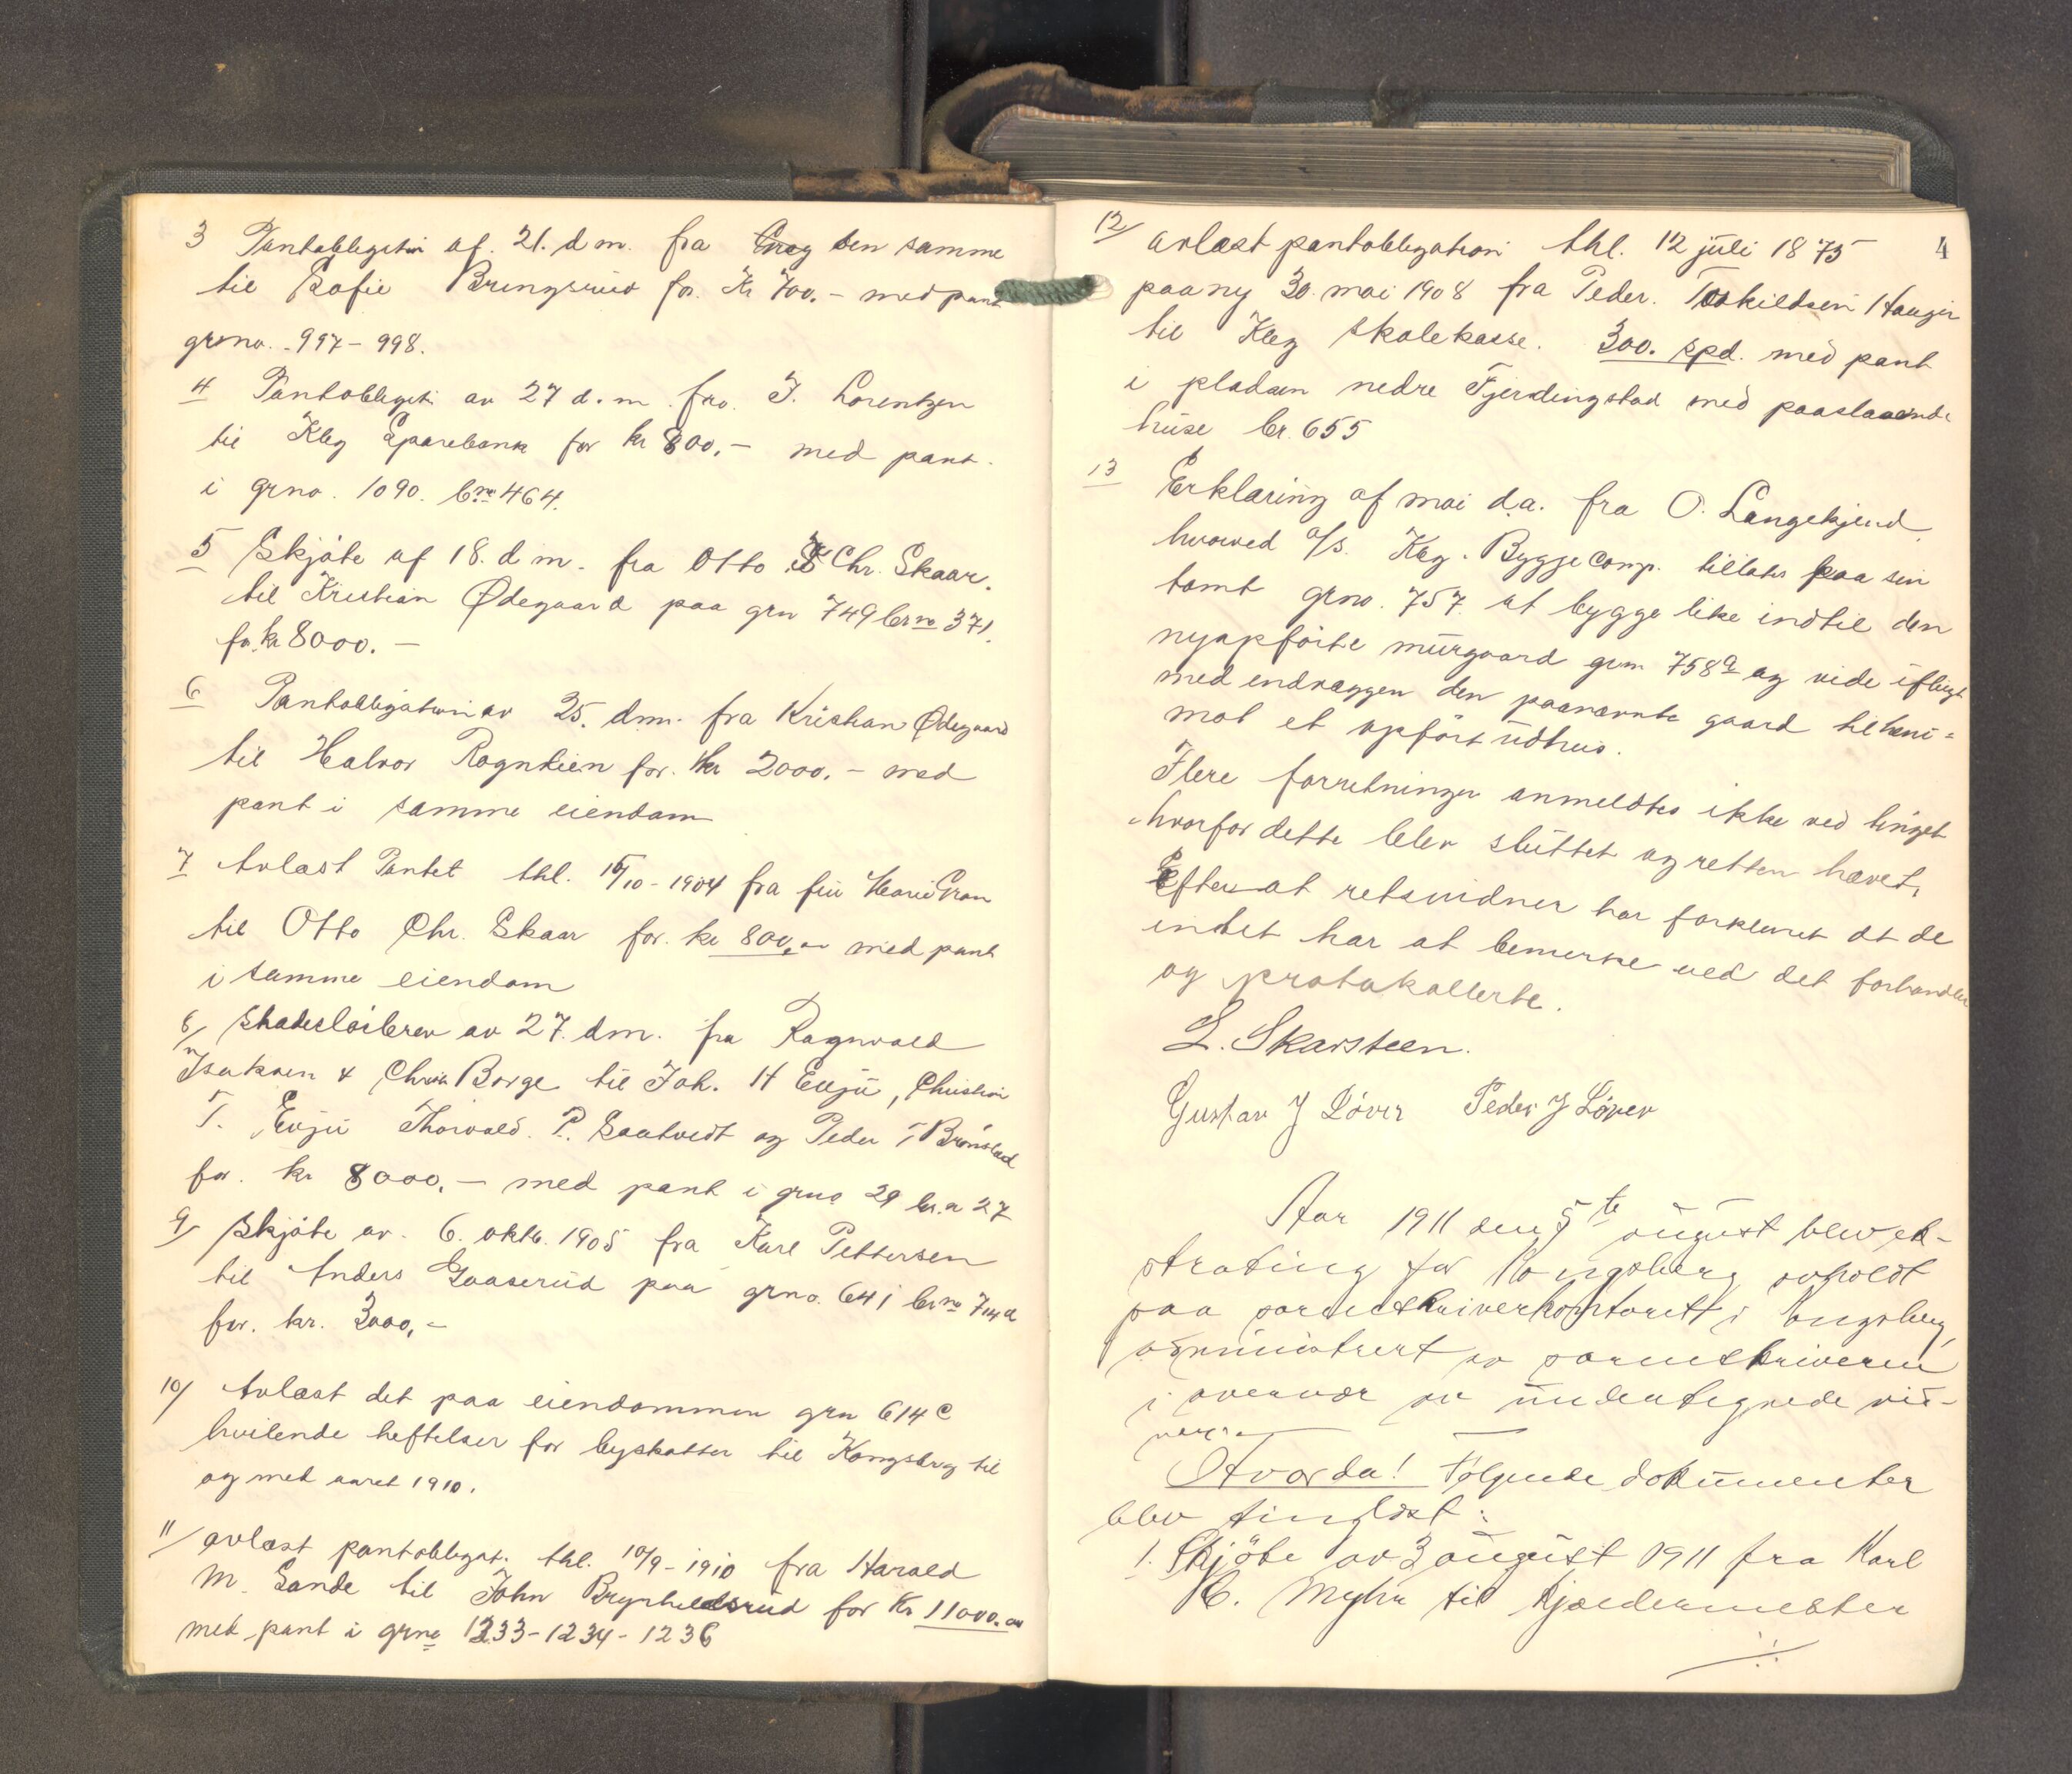 3 Pantobligation af. 21. d m. fra den samme
til Sofie Bringsrud for. Kr 700.- med pant
grno. 997 - 998.
4 Pantobligati av 27 d. m. fra. J. Lorentzen
til Kbg Sparebank for kr 800,- med pant
i grno. 1090. bno 464.
5 Skjøte af 18. d m. fra Otto Chr. Skaar.
til Kristian Ødegaard paa grn 749 brno 371.
for. kr 8000.-
6 Pantobligation av 25. dm. fra Kristian Ødegaard
til Halvor Rogndien for. kr 2000.- med
pant i samme eiendom
7 Avlæst Pantet thl. 15/10 - 1904 fra fru Marie Gran
til Otto Chr. Skaar for. kr 800,00 med pant
i samme eiendom
8/ Skadesløsbrev av 27. dm. fra Ragnvald
Isaksen & Christ Borge til Joh. H Evju, Christian
T. Evju Thorvald. P. Saatvedt og Peder T Brønstad
for. kr 8000,- med pant i grno 29 br.n 27
9/ Skjøte av. 6. oktb. 1905 fra Karl Pettersen
til Anders Gaaserud paa grno. 641 brno 714a
for. kr. 3000,-
10/ Avlæst det paa eiendommen grn 614c
hvilende heftelser for byskatter til Kongsberg til
og med aaret 1910.
11/ avlæst pantobligat. thl. 10/9 - 1910 fra Harald
M. Sande til John Brynhildsrud for Kr 11000.00
med pant i grno 1233 - 1234 - 1236
4
12/ avlæst pantobligation thl. 12 juli 1875
paany 30. mai 1908 fra Peder. Toskildsen Haugen
til Kbg skolekasse. 300. spd. med pant
i pladsen nedre Fjerdingstad med paastaaende
huse br. 655
13 Erklæring af mai d.a. fra O. Langekjend
hvorved a/s. Kbg. Bygge Comp. tillates paa sin
tomt grno. 757. at bygge like indtil den
nyopførte murgaard grn 758a og vide
med endvæggen den paanævnte gaard
mot et opført udhus.
Flere forretninger anmeldtes ikke ved tinget
hvorfor dette blev sluttet og retten hævet,
Efter at retsvidner har forklaret at de
intet har at bemerke ved det forhandlede
og protokollerte.
L. Skarsteen.
Gustav J Løver Peder J Løver
Aar 1911 den 5te august blev ek-
strating for Kongsberg avholdt
paa sorenskriverkontoret i Kongsberg,
administrert av sorenskriveren
i overvær av undertegnede vid-
ner:
Hvorda! Følgende dokumenter
blev tinglæst:
1. Skjöte av 3 august 1911 fra Karl
C. Myhre til kjældermester
./.